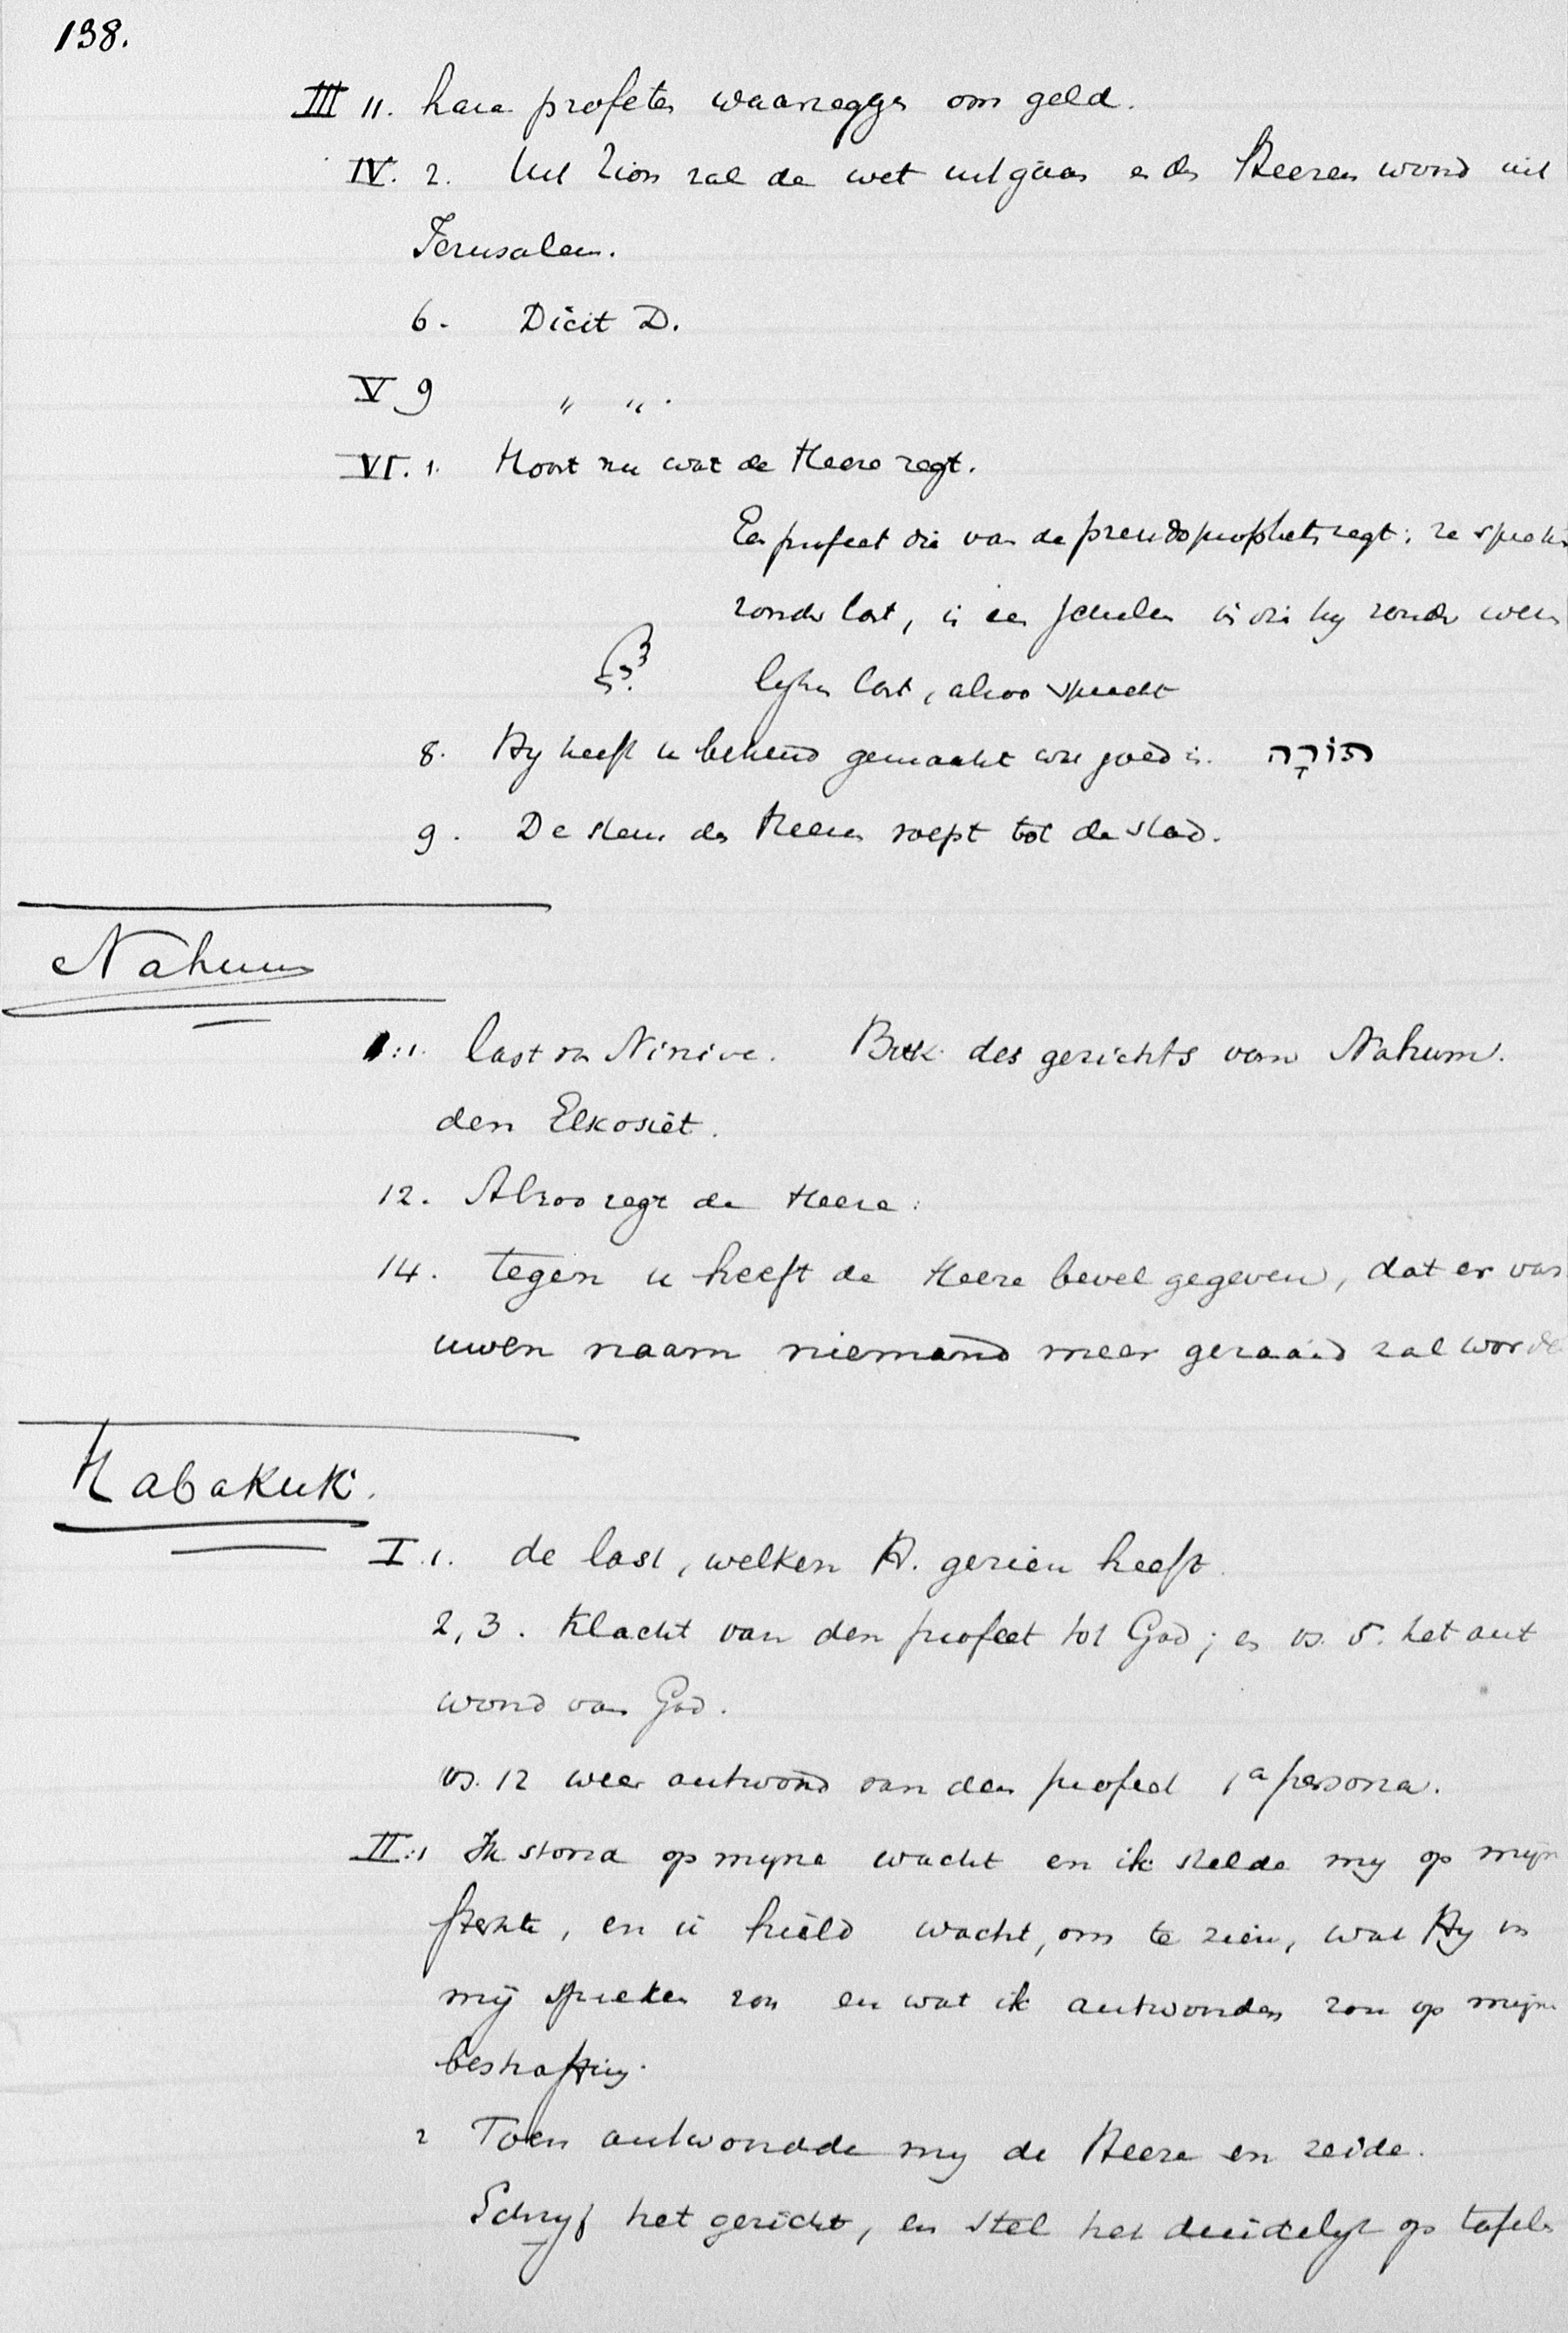 138.
III 11. hare profeten waarzeggen om geld.
IV. 2. Uit Zion zal de wet uitgaan en des Heeren woord uit
Jerusalem.
6. Dicit D.
V 9 " " .
VI. 1. Hoort nu wat de Heere zegt.
Een profeet die van de pseudoprophets zegt: ze spreken
zonder last, is een schender als hij zonder
lijken last, alzoo spreekt
8. Hy heeft u bekend gemaakt wat goed is. תּוֹרָה
9. De stem des Heeren roept tot de stad.
Nahum
I:1. last van Ninive. Boek des gezichts van Nahum.
den Elkosiet.
12. Alzoo zegt de Heere:
14. tegen u heeft de Heere bevel gegeven, dat er van
uwen naam niemand meer gezaaid zal worden
Habakuk.
I.1. de last, welken H. gezien heeft.
2, 3. Klacht van den profeet tot God; en vs. 5. het ant
woord van God.
vs. 12 weer antwoord van den profeet 1a persona.
II:1 Ik stond op myne wacht en ik stelde my op mijn
sterkte, en ik hield wacht, om te zien, wat Hy in
mij spreken zou en wat ik antwoorden zou op mijne
bestraffing.
2 Toen antwoordde my de Heere en zeide.
Schryf het gezicht, en stel het duidelyk op tafels